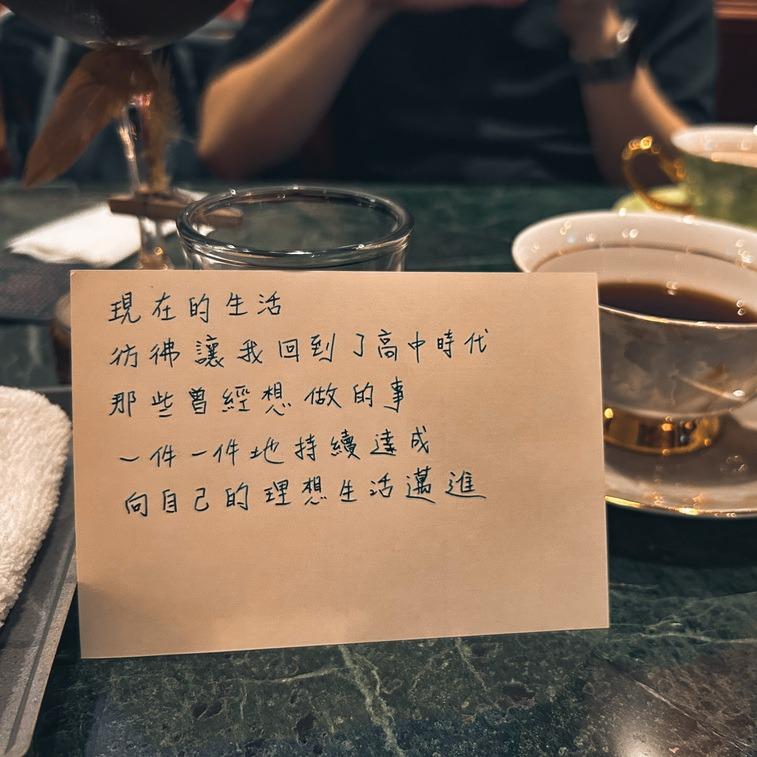 現在的生活
彷彿讓我回到了高中時代
那些曾經想做的事
一件一件地持續達成
向自己的理想生活邁進